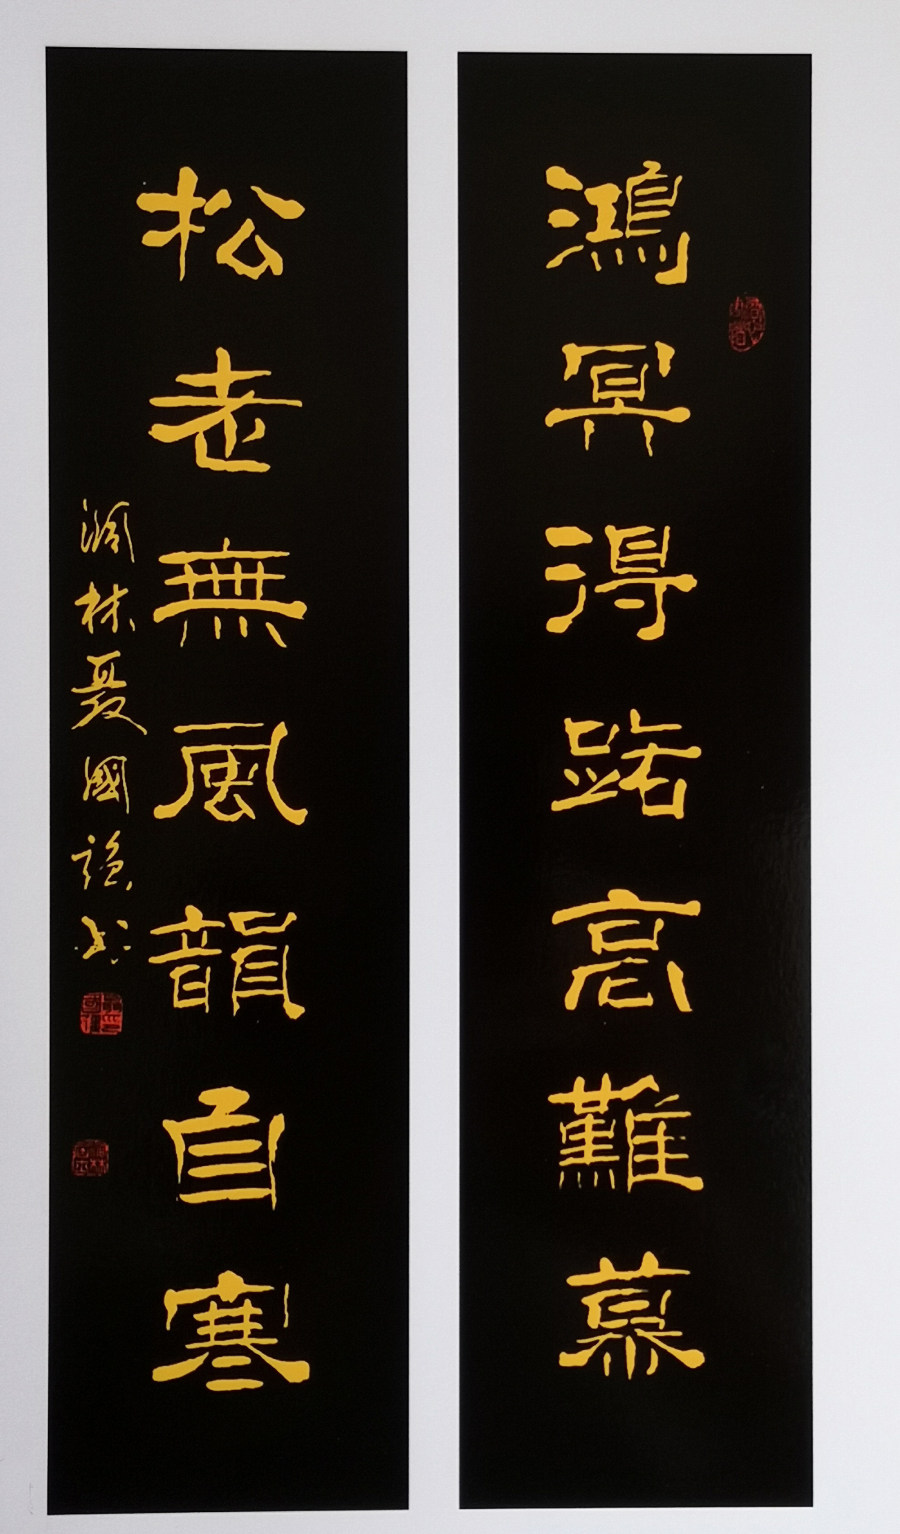 鴻冥得路高難慕
松老無風韻自寒
林聂國強书